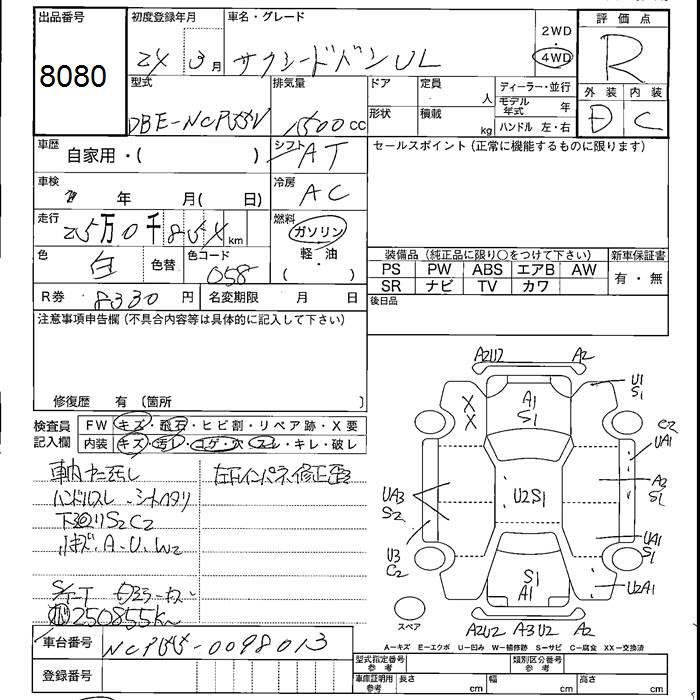 出品番号 初度登録年月 車名・グレード 評価点
8080 24 3月 サクシードバン UL 2WD ・ 4WD R
型式 排気量 ドア 定員 人 ディーラー・並行 外装 内装
DBE-NCP55V 1500cc 形状 積載 kg モデル年式 年 D C
ハンドル 左・右
車歴 自家用・( ) シフト AT セールスポイント(正常に機能するものに限ります)
車検 年 月( 日) 冷房 AC
走行 25万0千854km 燃料 ガソリン・軽・油 ( )
色 白 色替 色コード 058 装備品(純正品に限り○をつけて下さい) 新車保証書
PS PW ABS エアB AW 有・無
SR ナビ TV カワ
R券 8330円 名変期限 月 日 後日品
注意事項申告欄(不具合内容等は具体的に記入して下さい)
修復歴 有(箇所 )
検査員記入欄 FW キズ・飛石・ヒビ割・リペア跡・X要
内装 キズ・汚レ・コゲ・穴・スレ・キレ・破レ
車内ヤニ汚レ 左右インパネ修正歪
ハンドルスレ・シートヘタリ
下廻りS2C2
小キズ.A.U.W2
250855K
A2U2 A2
U1
S1
X
X
A1
S1
C2
UA1
UA3
S2
U2S1
A2
S1
U3
C2
UA1
S1
S1
A1
U2A1
スペア
A2U2 A3U2 A2
A-キズ E-エクボ U-凹み W-補修跡 S-サビ C-腐食 XX-交換済
車台番号 NCP55-0098013
登録番号
型式指定番号 参考 類別区分番号 参考
車庫証明用 参考 長さ cm 幅 cm 高さ cm